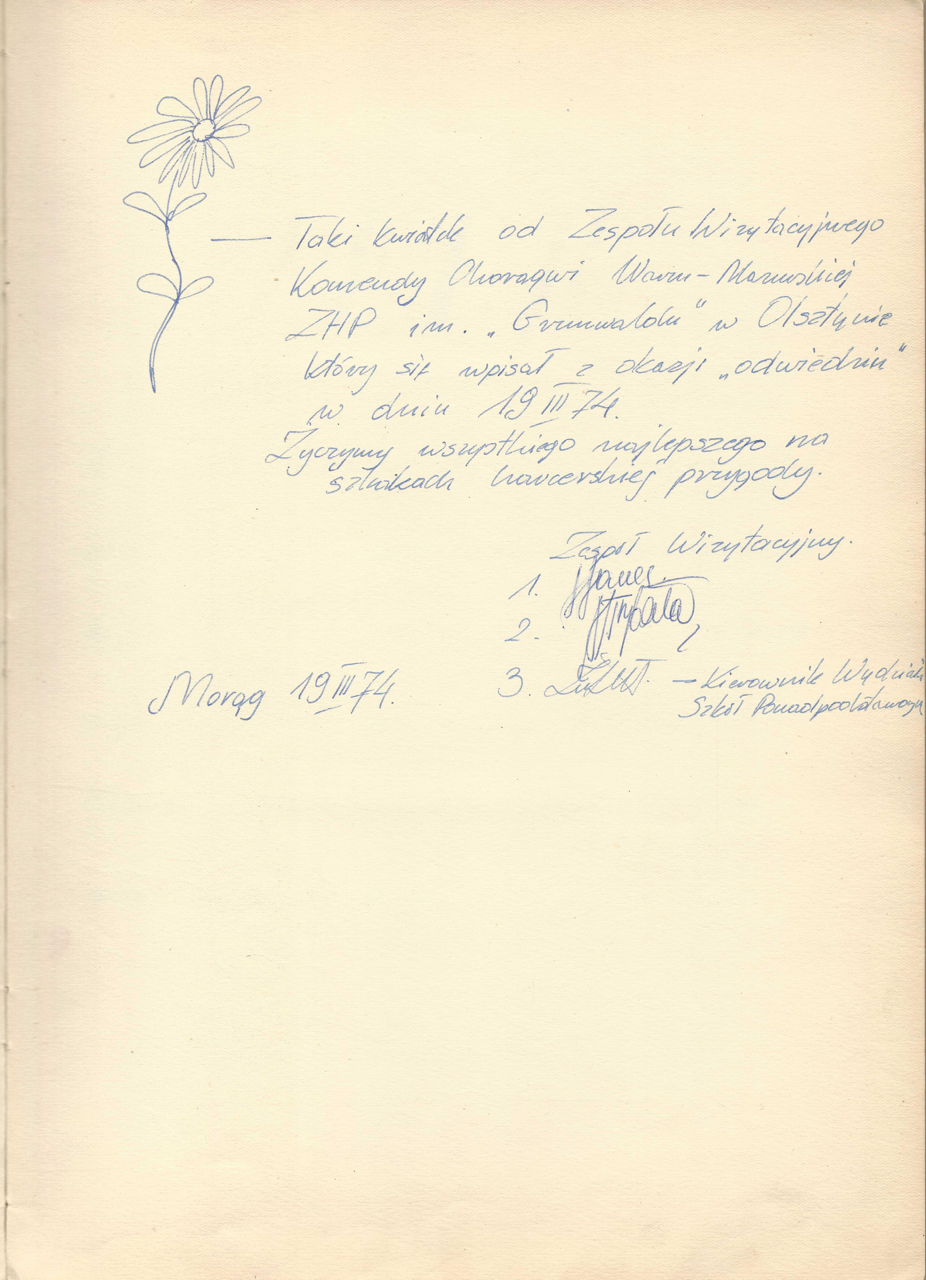 — Taki kwiatek od Zespołu Wizytacyjnego
Komendy Chorągwi Warm-Mazurskiej
ZHP im. „Grunwaldu" w Olsztynie
który się wpisał z okazji „odwiedzin"
w dniu 19 III 74.
Życzymy wszystkiego najlepszego na
szlakach harcerskiej przygody.
Zespół Wizytacyjny.
1.
2.
Morąg 19 III 74.
3. — Kierownik Wydziału
Szkół Ponadpodstawowych